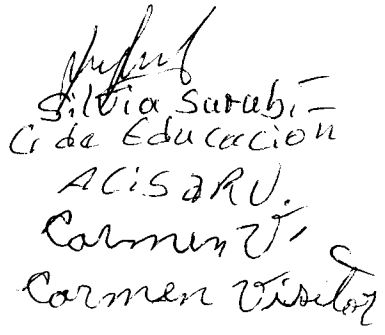 Silvia Surubí
C. de Educación
ACISARV.
Carmen V.
Carmen Visitor